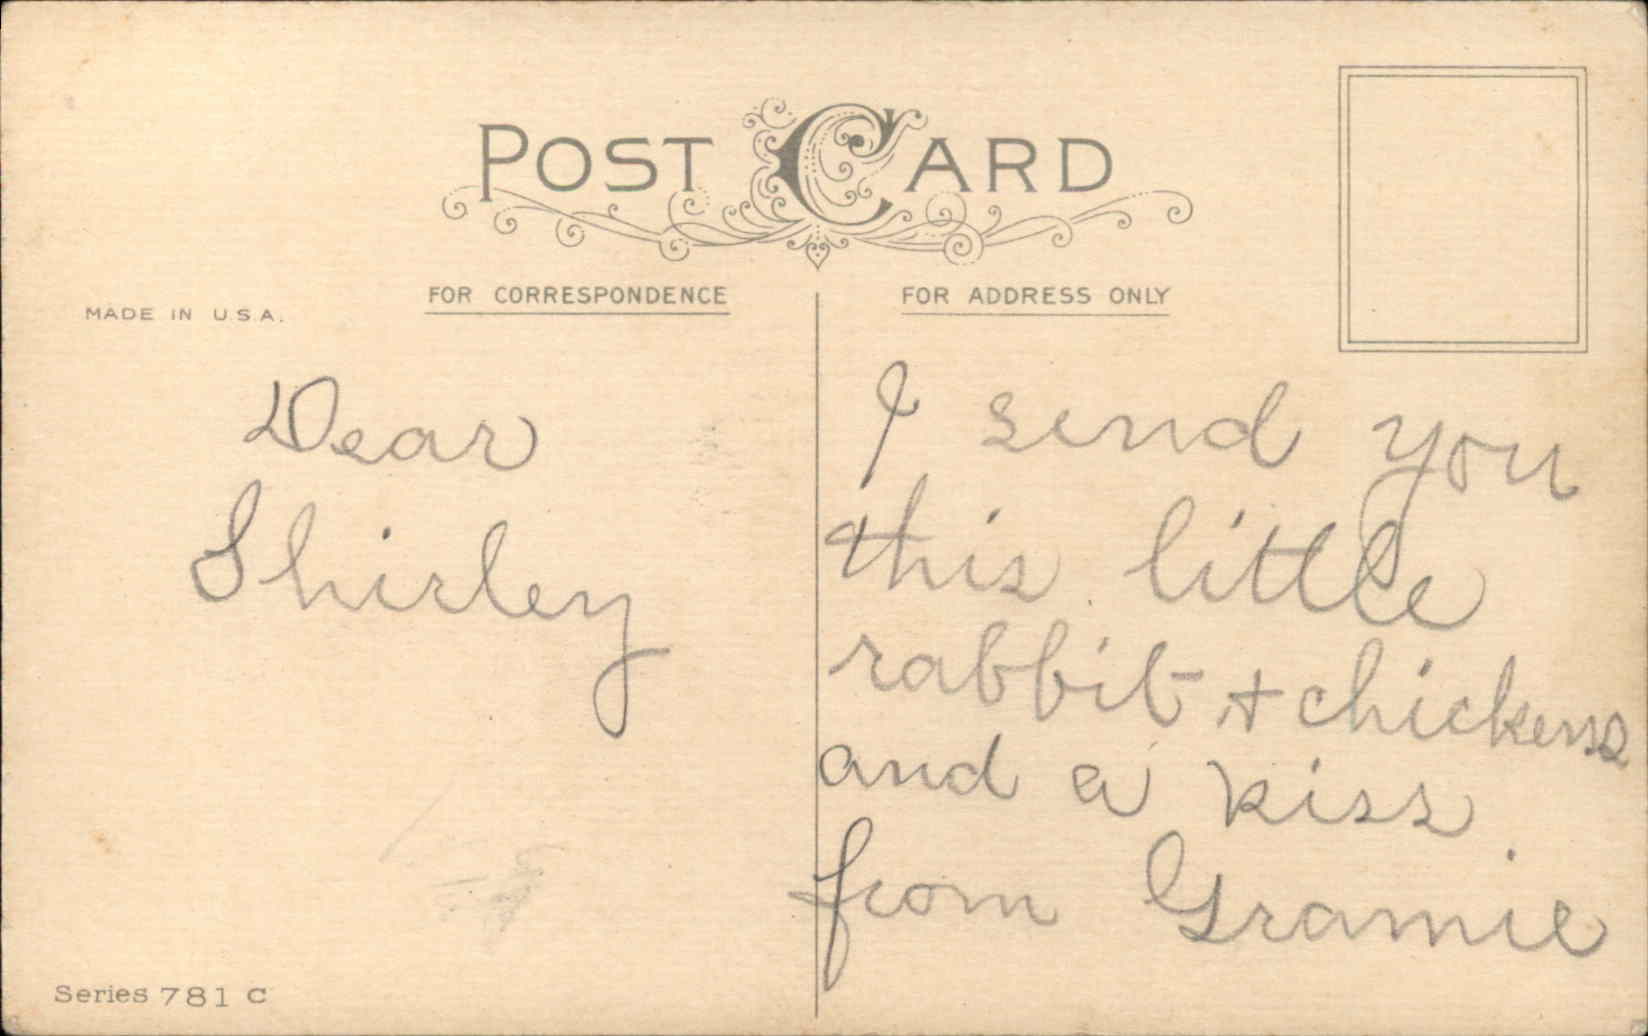 POST CARD
FOR CORRESPONDENCE
FOR ADDRESS ONLY
MADE IN U.S.A.
Dear
Shirley
I send you
this little
rabbit + chickens
and a kiss
from Gramie
Series 781 C